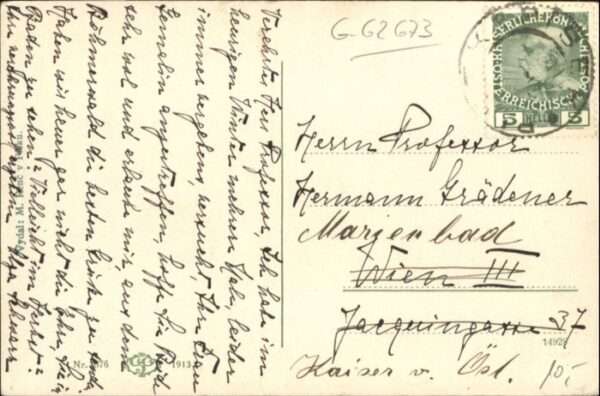 G 62 673
KAISERLICHE KÖNIGLICHE POST
ÖSTERREICHISCHE
5 HELLER 5
Herrn Professor
Hermann Grädener
Marienbad
Wien III
Jacquingasse 37
Kaiser v. Öst.
10,-
14928
Verehrter Herr Professor, Ich habe im
heurigen Winter mehrere Male, leider
immer vergebens, versucht, Ihr Frau
Gemalin anzutreffen, hoffe Sie Beide
sehr wol und erlaube mir, aus dem
Böhmerwald die besten Grüße zu senden
Haben wir heuer gar nicht die Ehre, Sie in
Baden zu sehen? Vielleicht im Herbst?
Ihr
Vydal: M.
Nr. 76
1913